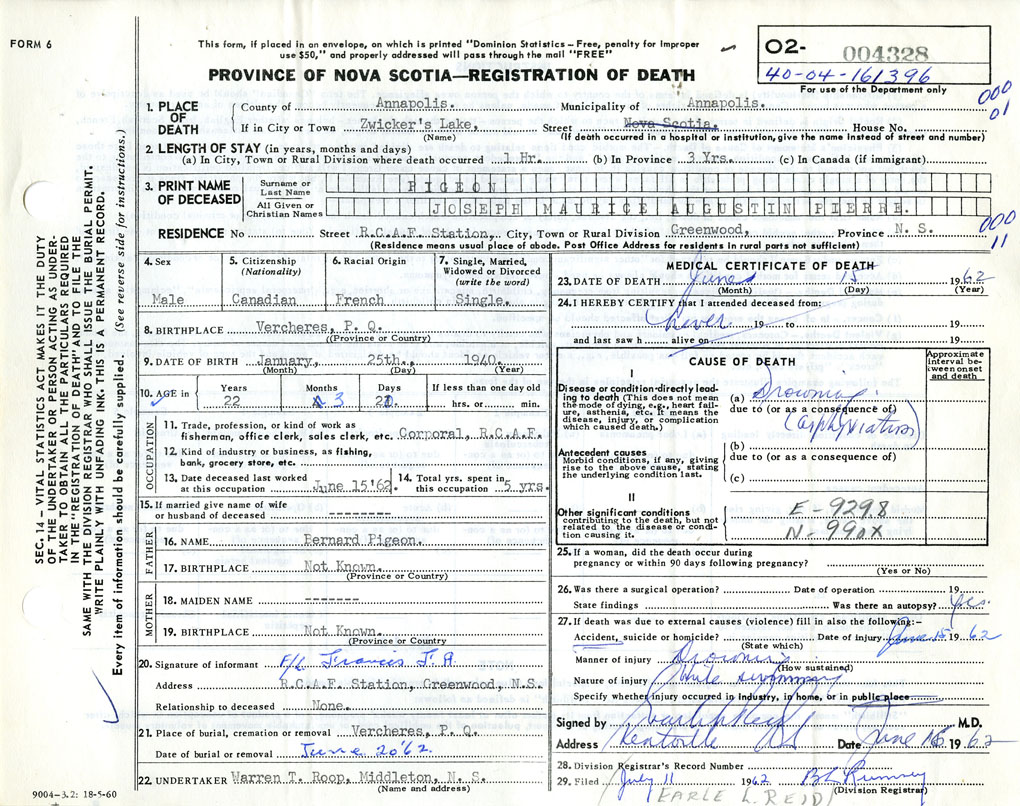 FORM 6
This form, if placed in an envelope, on which is printed "Dominion Statistics – Free, penalty for improper
use $50," and properly addressed will pass through the mail "FREE"
O2- 004328
40-04-161396
For use of the Department only
PROVINCE OF NOVA SCOTIA—REGISTRATION OF DEATH
000
01
1. PLACE OF DEATH
County of Annapolis. Municipality of Annapolis.
If in City or Town Zwicker's Lake, Street Nova Scotia. House No.
(Name) (If death occurred in a hospital or institution, give the name instead of street and number)
2. LENGTH OF STAY (in years, months and days)
(a) In City, Town or Rural Division where death occurred 1 Hr. (b) In Province 3 Yrs. (c) In Canada (if immigrant)
3. PRINT NAME OF DECEASED
Surname or Last Name PIGEON
All Given or Christian Names JOSEPH MAURICE AUGUSTIN PIERRE.
000
11
RESIDENCE No Street R.C.A.F. Station, City, Town or Rural Division Greenwood, Province N. S.
(Residence means usual place of abode. Post Office Address for residents in rural parts not sufficient)
4. Sex
Male
5. Citizenship
(Nationality)
Canadian
6. Racial Origin
French
7. Single, Married,
Widowed or Divorced
(write the word)
Single.
8. BIRTHPLACE Vercheres, P. Q.
(Province or Country)
9. DATE OF BIRTH January, 25th. 1940.
(Month) (Day) (Year)
10. AGE in
Years Months Days If less than one day old
22 3 21 hrs. or min.
OCCUPATION
11. Trade, profession, or kind of work as
fisherman, office clerk, sales clerk, etc. Corporal, R.C.A.F.
12. Kind of industry or business, as fishing,
bank, grocery store, etc.
13. Date deceased last worked
at this occupation June 15'62.
14. Total yrs. spent in
this occupation 5 yrs.
15. If married give name of wife
or husband of deceased --------
FATHER
16. NAME Bernard Pigeon.
17. BIRTHPLACE Not Known.
(Province or Country)
MOTHER
18. MAIDEN NAME --------
19. BIRTHPLACE Not Known.
(Province or Country
20. Signature of informant F/L Francis J. A
Address R.C.A.F. Station, Greenwood, N.S.
Relationship to deceased None.
21. Place of burial, cremation or removal Vercheres, P. Q.
Date of burial or removal June 20'62.
22. UNDERTAKER Warren T. Roop, Middleton, N. S.
(Name and address)
MEDICAL CERTIFICATE OF DEATH
23. DATE OF DEATH June 15 1962
(Month) (Day) (Year)
24. I HEREBY CERTIFY that I attended deceased from:
never 19 to 19
and last saw h alive on 19
CAUSE OF DEATH
Approximate interval between onset and death
I
Disease or condition directly leading to death (This does not mean the mode of dying, e.g., heart failure, asthenia, etc. It means the disease, injury, or complication which caused death.)
(a) Drowning
due to (or as a consequence of)
(asphyxiation)
(b)
Antecedent causes
Morbid conditions, if any, giving rise to the above cause, stating the underlying condition last.
due to (or as a consequence of)
(c)
II
Other significant conditions
contributing to the death, but not related to the disease or condition causing it.
E-9298
N-990X
25. If a woman, did the death occur during
pregnancy or within 90 days following pregnancy?
(Yes or No)
26. Was there a surgical operation? Date of operation 19
State findings Was there an autopsy? yes.
27. If death was due to external causes (violence) fill in also the following:–
Accident, suicide or homicide? Date of injury June 15 1962
(State which)
Manner of injury Drowning
(How sustained)
Nature of injury while swimming
Specify whether injury occurred in industry, in home, or in public place
Signed by M.D.
Address Kentville NS Date June 16 1962
28. Division Registrar's Record Number
29. Filed July 11 1962
(Division Registrar)
EARLE L. REID
SEC. 14 – VITAL STATISTICS ACT MAKES IT THE DUTY
OF THE UNDERTAKER OR PERSON ACTING AS UNDER-
TAKER TO OBTAIN ALL THE PARTICULARS REQUIRED
IN THE "REGISTRATION OF DEATH" AND TO FILE THE
SAME WITH THE DIVISION REGISTRAR WHO SHALL ISSUE THE BURIAL PERMIT.
WRITE PLAINLY WITH UNFADING INK. THIS IS A PERMANENT RECORD.
Every item of information should be carefully supplied. (See reverse side for instructions.)
9004-3.2: 18-5-60